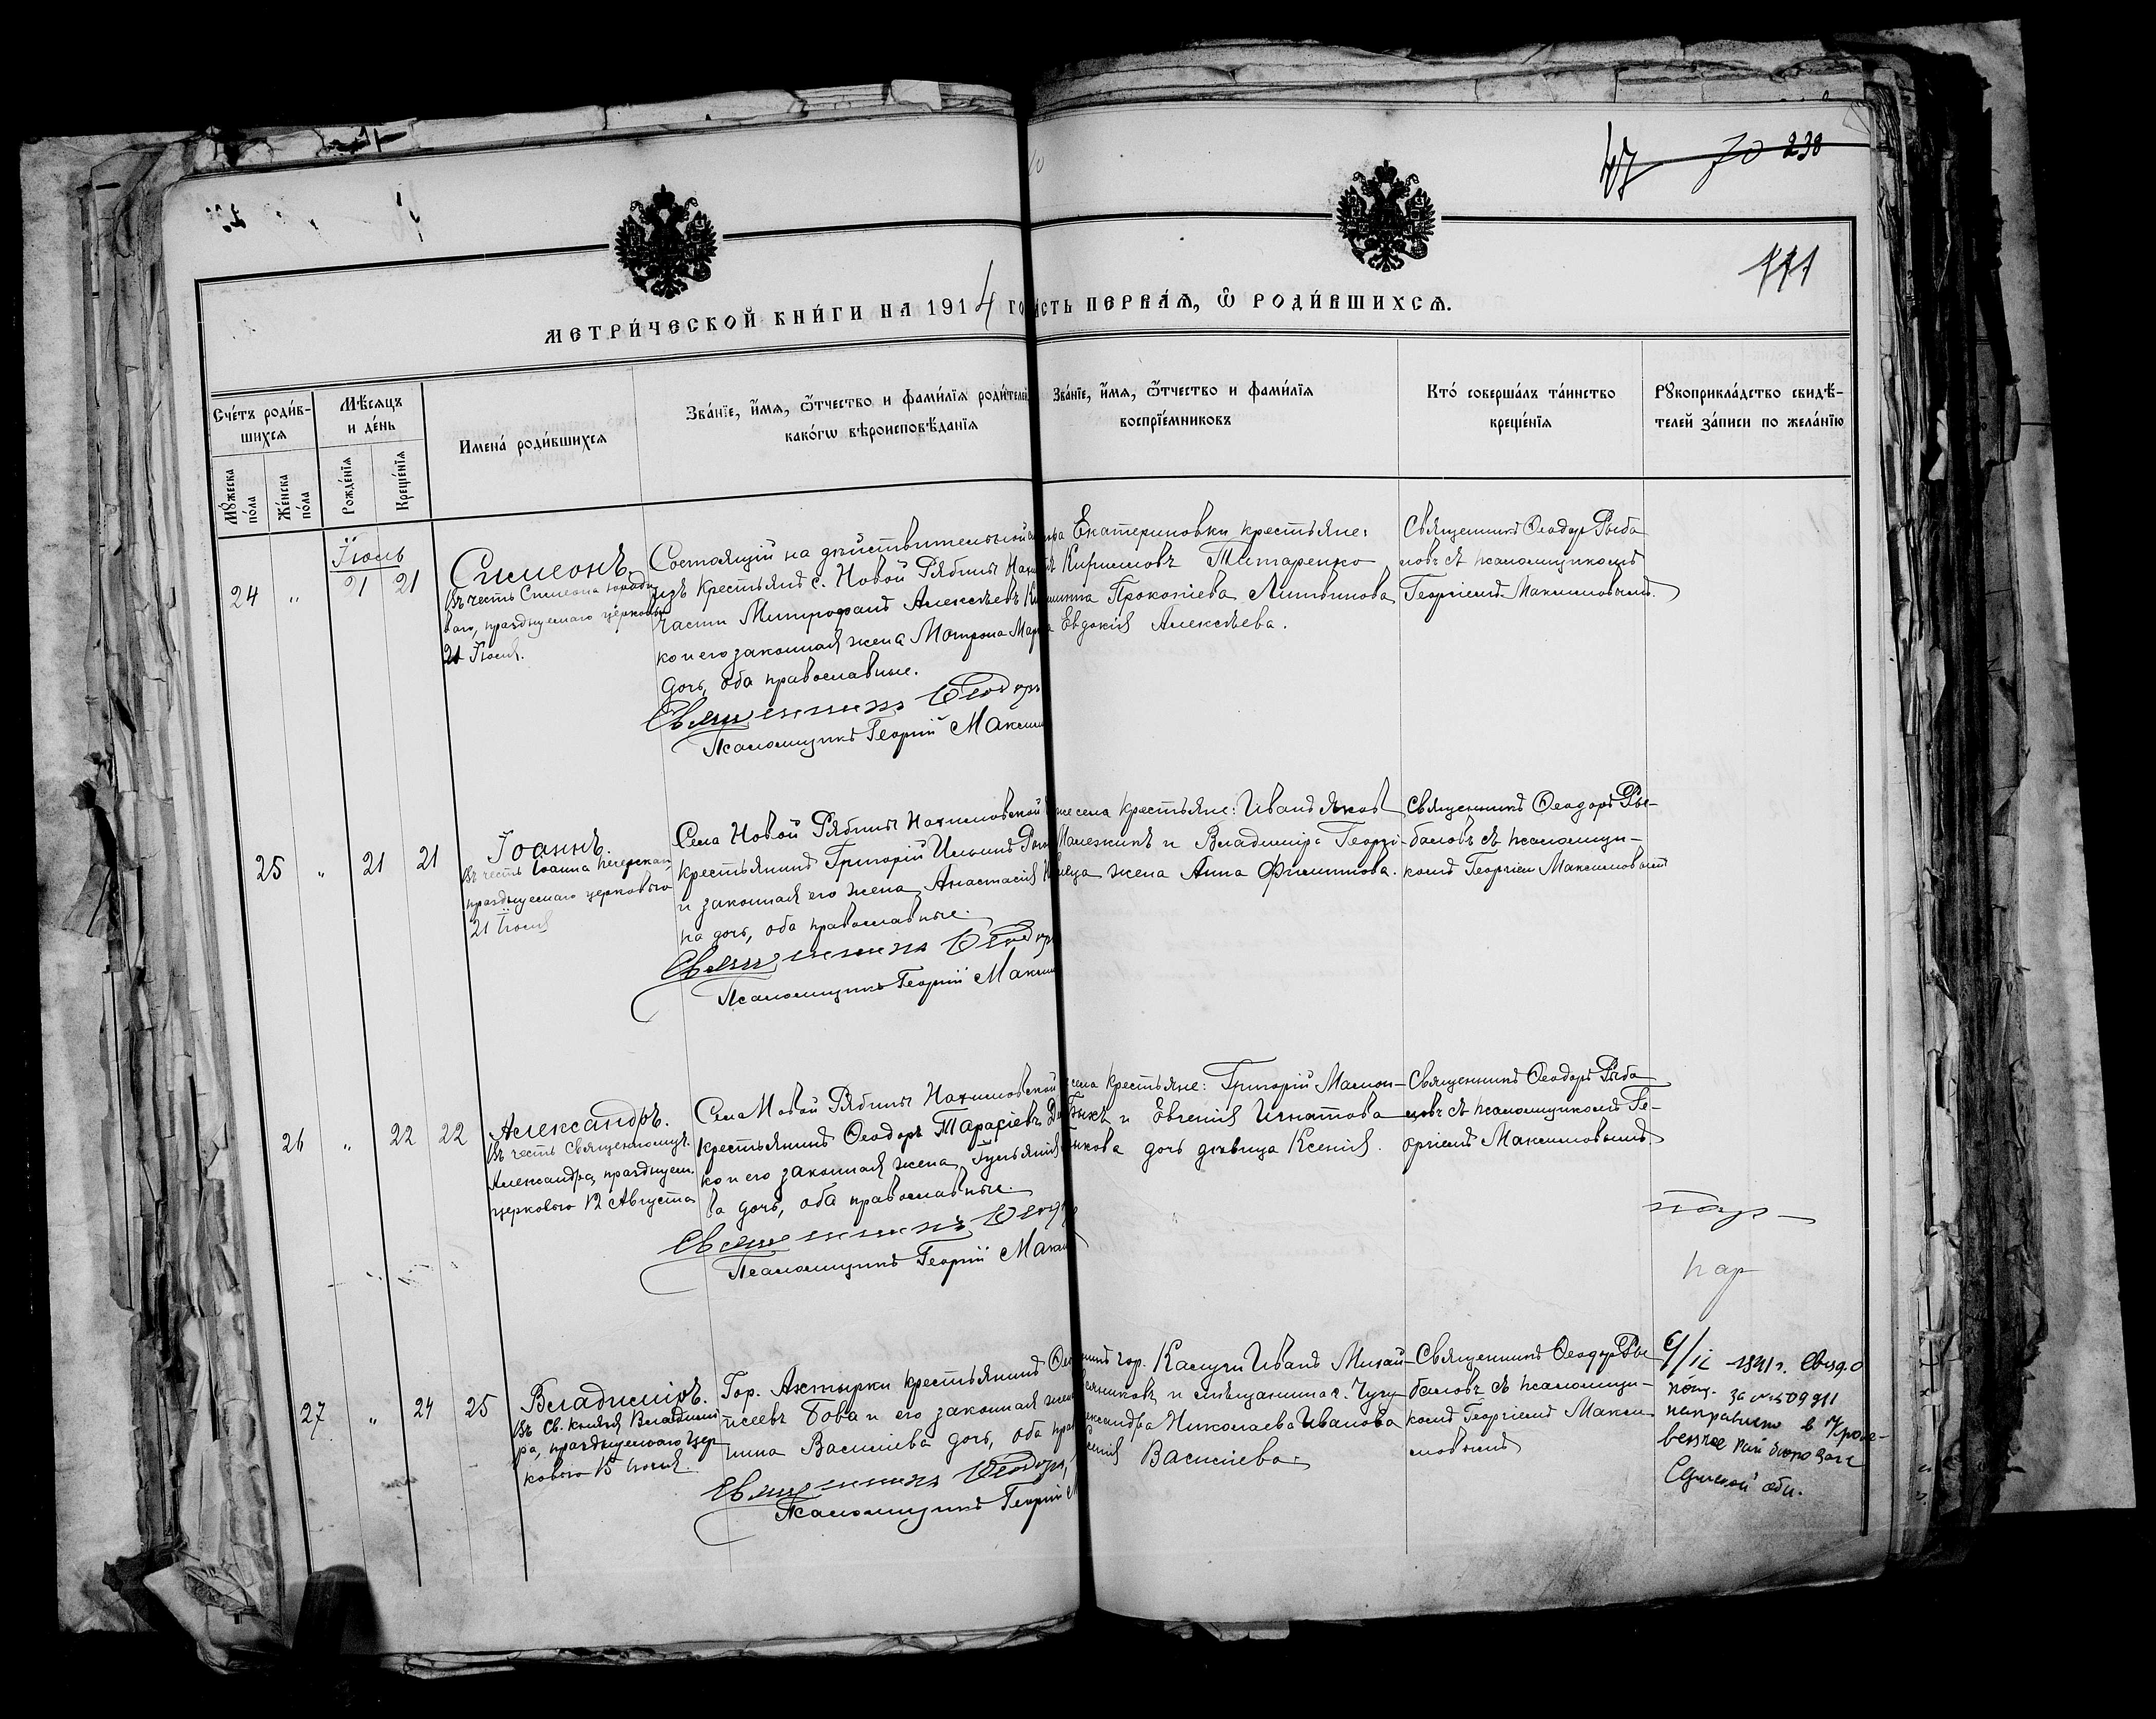 47 70 238
111
МЕТРИ́ЧЕСКОЙ КНИ́ГИ НА 1914 ГО
ИСТЬ ПЕРВА́Ѧ, Ѿ РОДИ́ВШИХСѦ.
Сче́тъ роди́в-
шихсѧ
Мѣ́сѧцъ
и де́нь
Мꙋ́жеска
по́ла
Же́нска
по́ла
Рожде́нїѧ
Креще́нїѧ
Имена̀ роди́вшихсѧ
Зва́нїе, и҆́мѧ, ѻ҆́тчество и фами́лїѧ роди́телей
како́гѡ вѣроисповѣ́данїѧ
Зва́нїе, и҆́мѧ, ѻ҆́тчество и фами́лїѧ
воспрїе́мниковъ
Кто́ соверша́лъ та́инство
креще́нїѧ
Рꙋкоприкла́дство свидѣ́-
телей за́писи по жела́нїю
Іюль
24 " 21 21
Симеонъ.
Въ честь Симеона юроди
ваго, празднуемаго церковью
21 Іюля.
Состоящій на дѣйствительной
изъ крестьянъ с. Новой Рябины
части Митрофанъ Алексѣевъ
ко и его законная жена Мотрона
дочь, оба православные.
Священникъ Ѳеодоръ
Псаломщикъ Георгій Максим
Екатериновки крестьяне:
Кириловъ Титаренко
Прокопіева Литвинова
Евдокія Алексѣева.
Священникъ Ѳеодоръ Рыба
ловъ съ псаломщикомъ
Георгіемъ Максимовымъ.
25 " 21 21
Іоаннъ.
Въ честь Іоанна
празднуемаго церковью
21 Іюля
Села Новой Рябины Нахимовской
крестьянинъ Григорій Ильинъ
и законная его жена Анастасія
на дочь, оба православные.
Священникъ Ѳеодоръ
Псаломщикъ Георгій Максим
же села крестьяне: Иванъ Яков
и Владиміра Георгі-
жена Анна Филиппова.
Священникъ Ѳеодоръ Ры-
баловъ съ псаломщи-
комъ Георгіем Максимовымъ
26 " 22 22
Александръ.
Въ честь Священномуч.
Александра, празднуем.
церковью 12 Августа
Села Новой Рябины Нахимовской
крестьянинъ Ѳеодоръ Тарасіевъ
ко и его законная жена Іуліанія
ва дочь, оба православные.
Священникъ Ѳеодор
Псаломщикъ Георгій Макси
села крестьяне: Григорій Мамон-
и Евгенія Игнатова
дочь дѣвица Ксенія.
Священникъ Ѳеодоръ Рыба
ловъ съ псаломщикомъ Ге-
оргіемъ Максимовымъ.
пар
27 " 24 25
Владиміръ.
Въ Св. Князя Владими
ра, празднуемаго цер
ковью 15 Іюля.
Гор. Ахтырки крестьянинъ
Бова и его законная жена
Василіева дочь, оба пра
Священникъ Ѳеодоръ,
Псаломщикъ Георгій М
гор. Калуги Иванъ Михай-
и мѣщанина г. Чугу
Николаева Иванова
Василіева.
Священникъ Ѳеодоръ Ры
баловъ съ псаломщи-
комъ Георгіемъ Макси
мовымъ
за № 509911
Сумской обл.